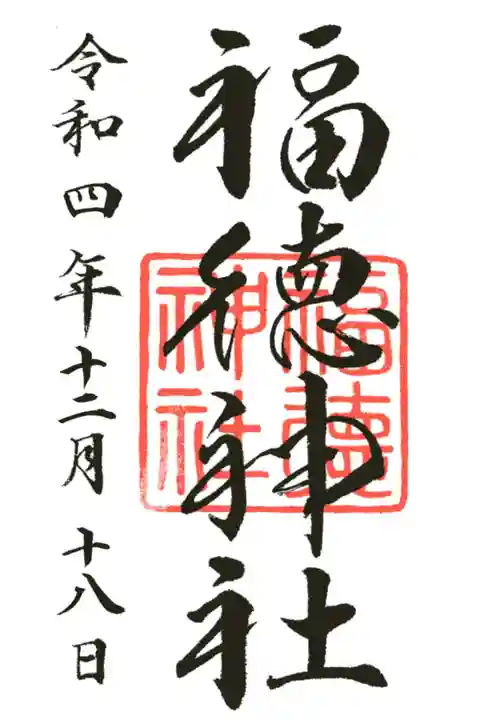 福徳神社
令和四年十二月十八日
福徳神社